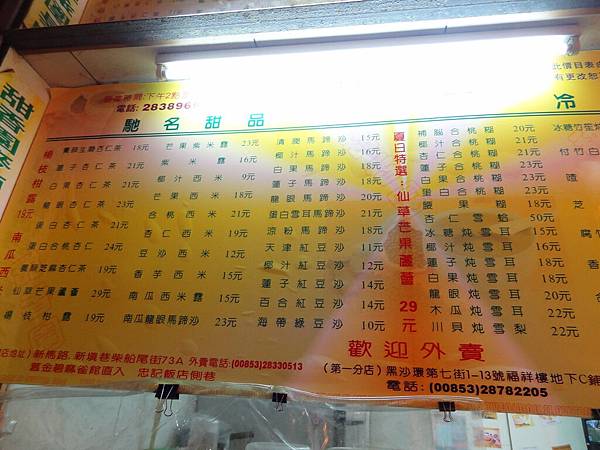 甜
營業時間:下午2點
電話: 2838966
此價目表
有更改恕
馳名甜品
冷
楊枝柑露 18元
南瓜西米
鷹粟生磨杏仁茶 18元
蓮子杏仁茶 21元
白果杏仁茶 21元
龍眼杏仁茶 23元
蛋白杏仁茶 21元
蛋白合桃杏仁 24元
芝麻杏仁茶 19元
仙草芒果蘆薈 29元
楊枝柑露 19元
芒果紫米露 23元
紫米露 16元
椰汁西米 9元
芒果西米 18元
合桃西米 21元
杏仁西米 19元
豆沙西米 12元
香芋西米 15元
南瓜西米露 15元
南瓜龍眼馬蹄沙 23元
清腹馬蹄沙 15元
椰汁馬蹄沙 16元
白果馬蹄沙 18元
蓮子馬蹄沙 18元
龍眼馬蹄沙 20元
蛋白雪耳馬蹄沙 21元
涼粉馬蹄沙 18元
天津紅豆沙 11元
椰汁紅豆沙 12元
蓮子紅豆沙 14元
百合紅豆沙 14元
海帶綠豆沙 10元
夏日特選:仙草芒果蘆薈 29元
補腦合桃糊 20元
椰汁合桃糊 21元
杏仁合桃糊
蓮子合桃糊
白果合桃糊
蛋白合桃糊
腰果糊 18元
杏仁雪蛤 50元
冰糖炖雪耳 15元
椰汁炖雪耳 16元
蓮子炖雪耳 18元
白果炖雪耳 18元
龍眼炖雪耳 20元
木瓜炖雪耳 22元
川貝炖雪梨 22元
冰糖竹笙
付竹白
喳
芝
腐
香
歡迎外賣
新馬路,新填巷柴船尾街73A 外賣電話:(00853)28330513
舊金碧麻雀館直入 忠記飯店側巷
(第一分店)黑沙環第七街1-13號福祥樓地下C鋪
電話:(00853)28782205